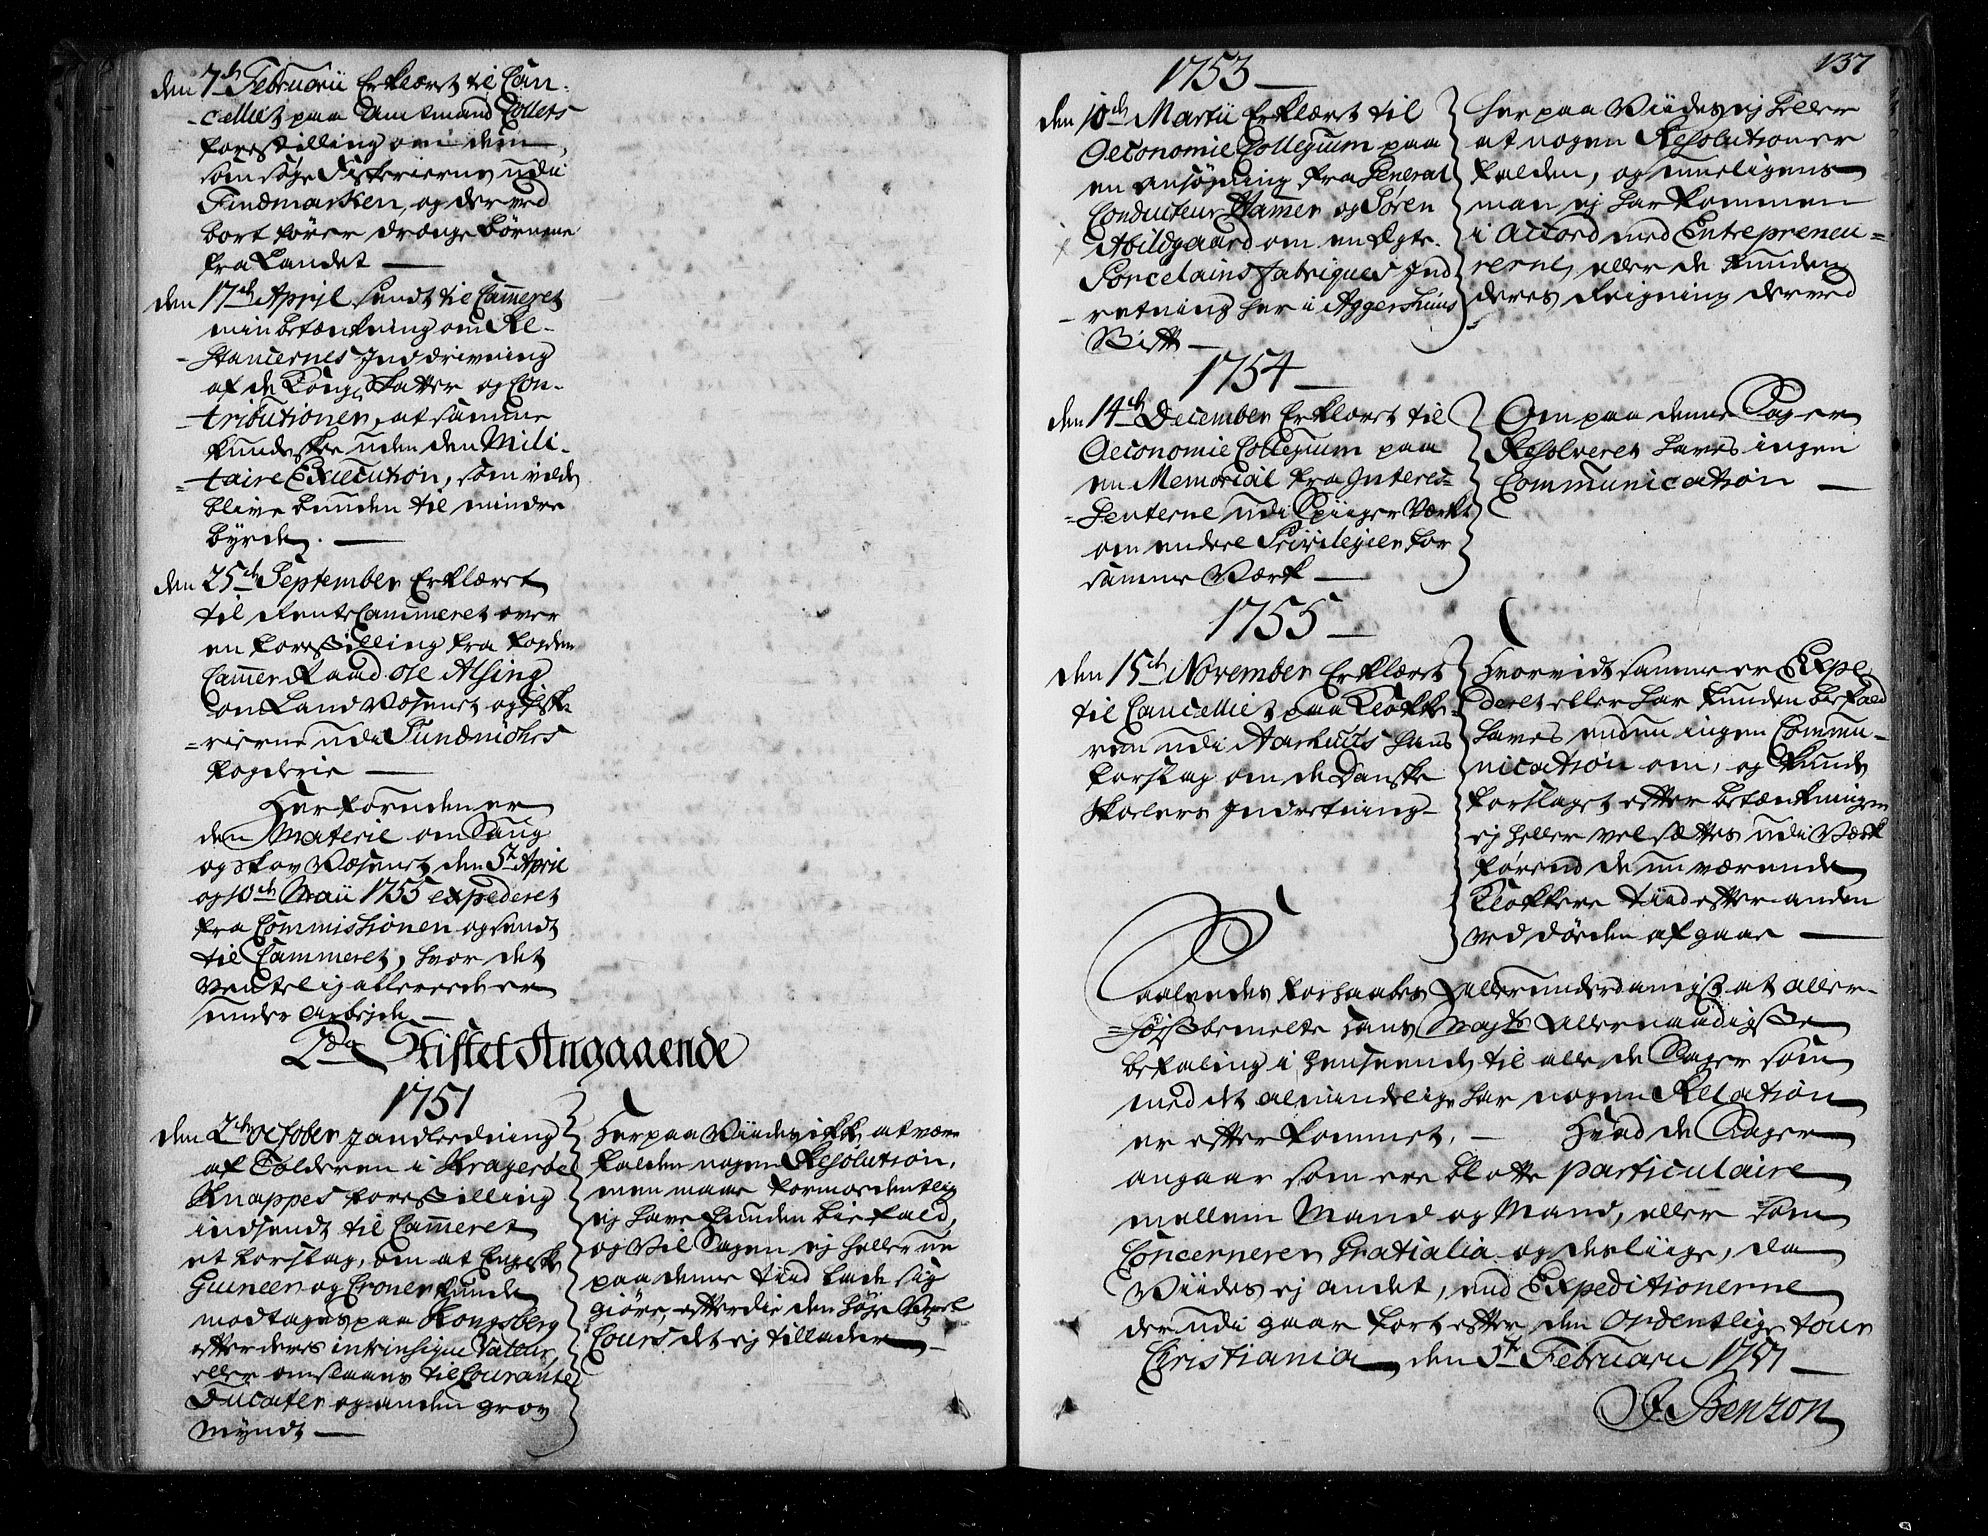 den 7de Februarii Erklæret til Can-
-celliet paa Amtmand Collets
forestilling om dem,
som søge Fiskerierne udi
Findmarken, og derved
bort fører drænge børnene
fra Landet —
den 17de April sendt til Cammeret
min betænkning om Re-
-stancernes Inddrivning
af de Kongl. Skatter og Con-
-tributioner, at samme
kunde skee uden den Mili-
-taire Execution, som vilde
blive bunden til mindre
byrde. —
den 25de September Erklæret
til RenteCammeret over
en forestilling fra fogden
CammerRaad Ole Alsing
om LandVæsenet og fiske-
-rierne udi Sundmøhrs
fogderie —
Herforuden er
den Materie om Saug
og SkovVæsenet den 5te April
og 10de Maii 1755 expederet
fra Commissionen og sendt
til Cammeret, hvor det
venteligallerede er
under Arbejde —
2do Stiftet Angaaende
1751
den 2den October I anledning
af Tolderen i Kragerøe
Knappes forestilling
indsendt til Cammeret
et forslag, om at Engelske
Guineer og Croner kunde
modtages paa Kongsberg
efter deres intrinsique Valeur
eller omslaaes til Courante
Ducater og anden grov
Myndt —
Herpaa Viides ikke at være
falden nogen Resolution,
men maae formodentlig
ej have funden biefald,
og Vil Sagen ej heller nu
paa denne tiid lade sig
giøre, efterdie den høje Vexel
Cours det ej tillader —
137
1753 —
den 10de Martii Erklæret til
Oeconomie Collegium paa
en ansøgning fra General
Conducteur Hammer og Søren
Abildgaard om en Ægte
Porcelains fabriques Ind
-retning her i Aggershuus
Stift —
Herpaa Viides ej heller
at nogen Resolution er
falden, og
man ej har kommen
i Accord med Entrepreneu-
rerne, eller de funden
deres Reigning derved
1754 —
den 14de December Erklæret til
Oeconomie Collegium paa
en Memorial fra Interes-
-senterne udi Spiiger Værket
om endeel Privilegier for
samme Værk —
Om paa denne Sag er
Resolveret haves ingen
Communication —
1755 —
den 15de November Erklæret
til Cancelliet paa Klokke-
ren udi Aarhuus hans
forslag om de Danske
Skolers Indretning —
Hvorvidt samme er Expe
deret eller har funden biefald
haves endnu ingen Commu-
nication om, og kunde
forslaget efter betænkningen
ej heller vel sættes udi Værk
førend de nu værende
Klokkere tiid efter anden
ved døden afgaar —
Saaledes forhaabes allerunderdanigst at aller-
-højstbemelte Hans Mayts Allernaadigste
befaling i henseende til alle de Sager som
med det almindelige har nogen Relation
er efterkommet. — Hvad de Sager
angaar som ere blotte particulaire
mellem Mand og Mand, eller som
Concernerer Gratialia og desliige, da
Viides ej andet, end Expeditionerne
derudi gaar fort efter den Ordentlige tour
Christiania den 5te Februarii 1757 —
J. Benzon